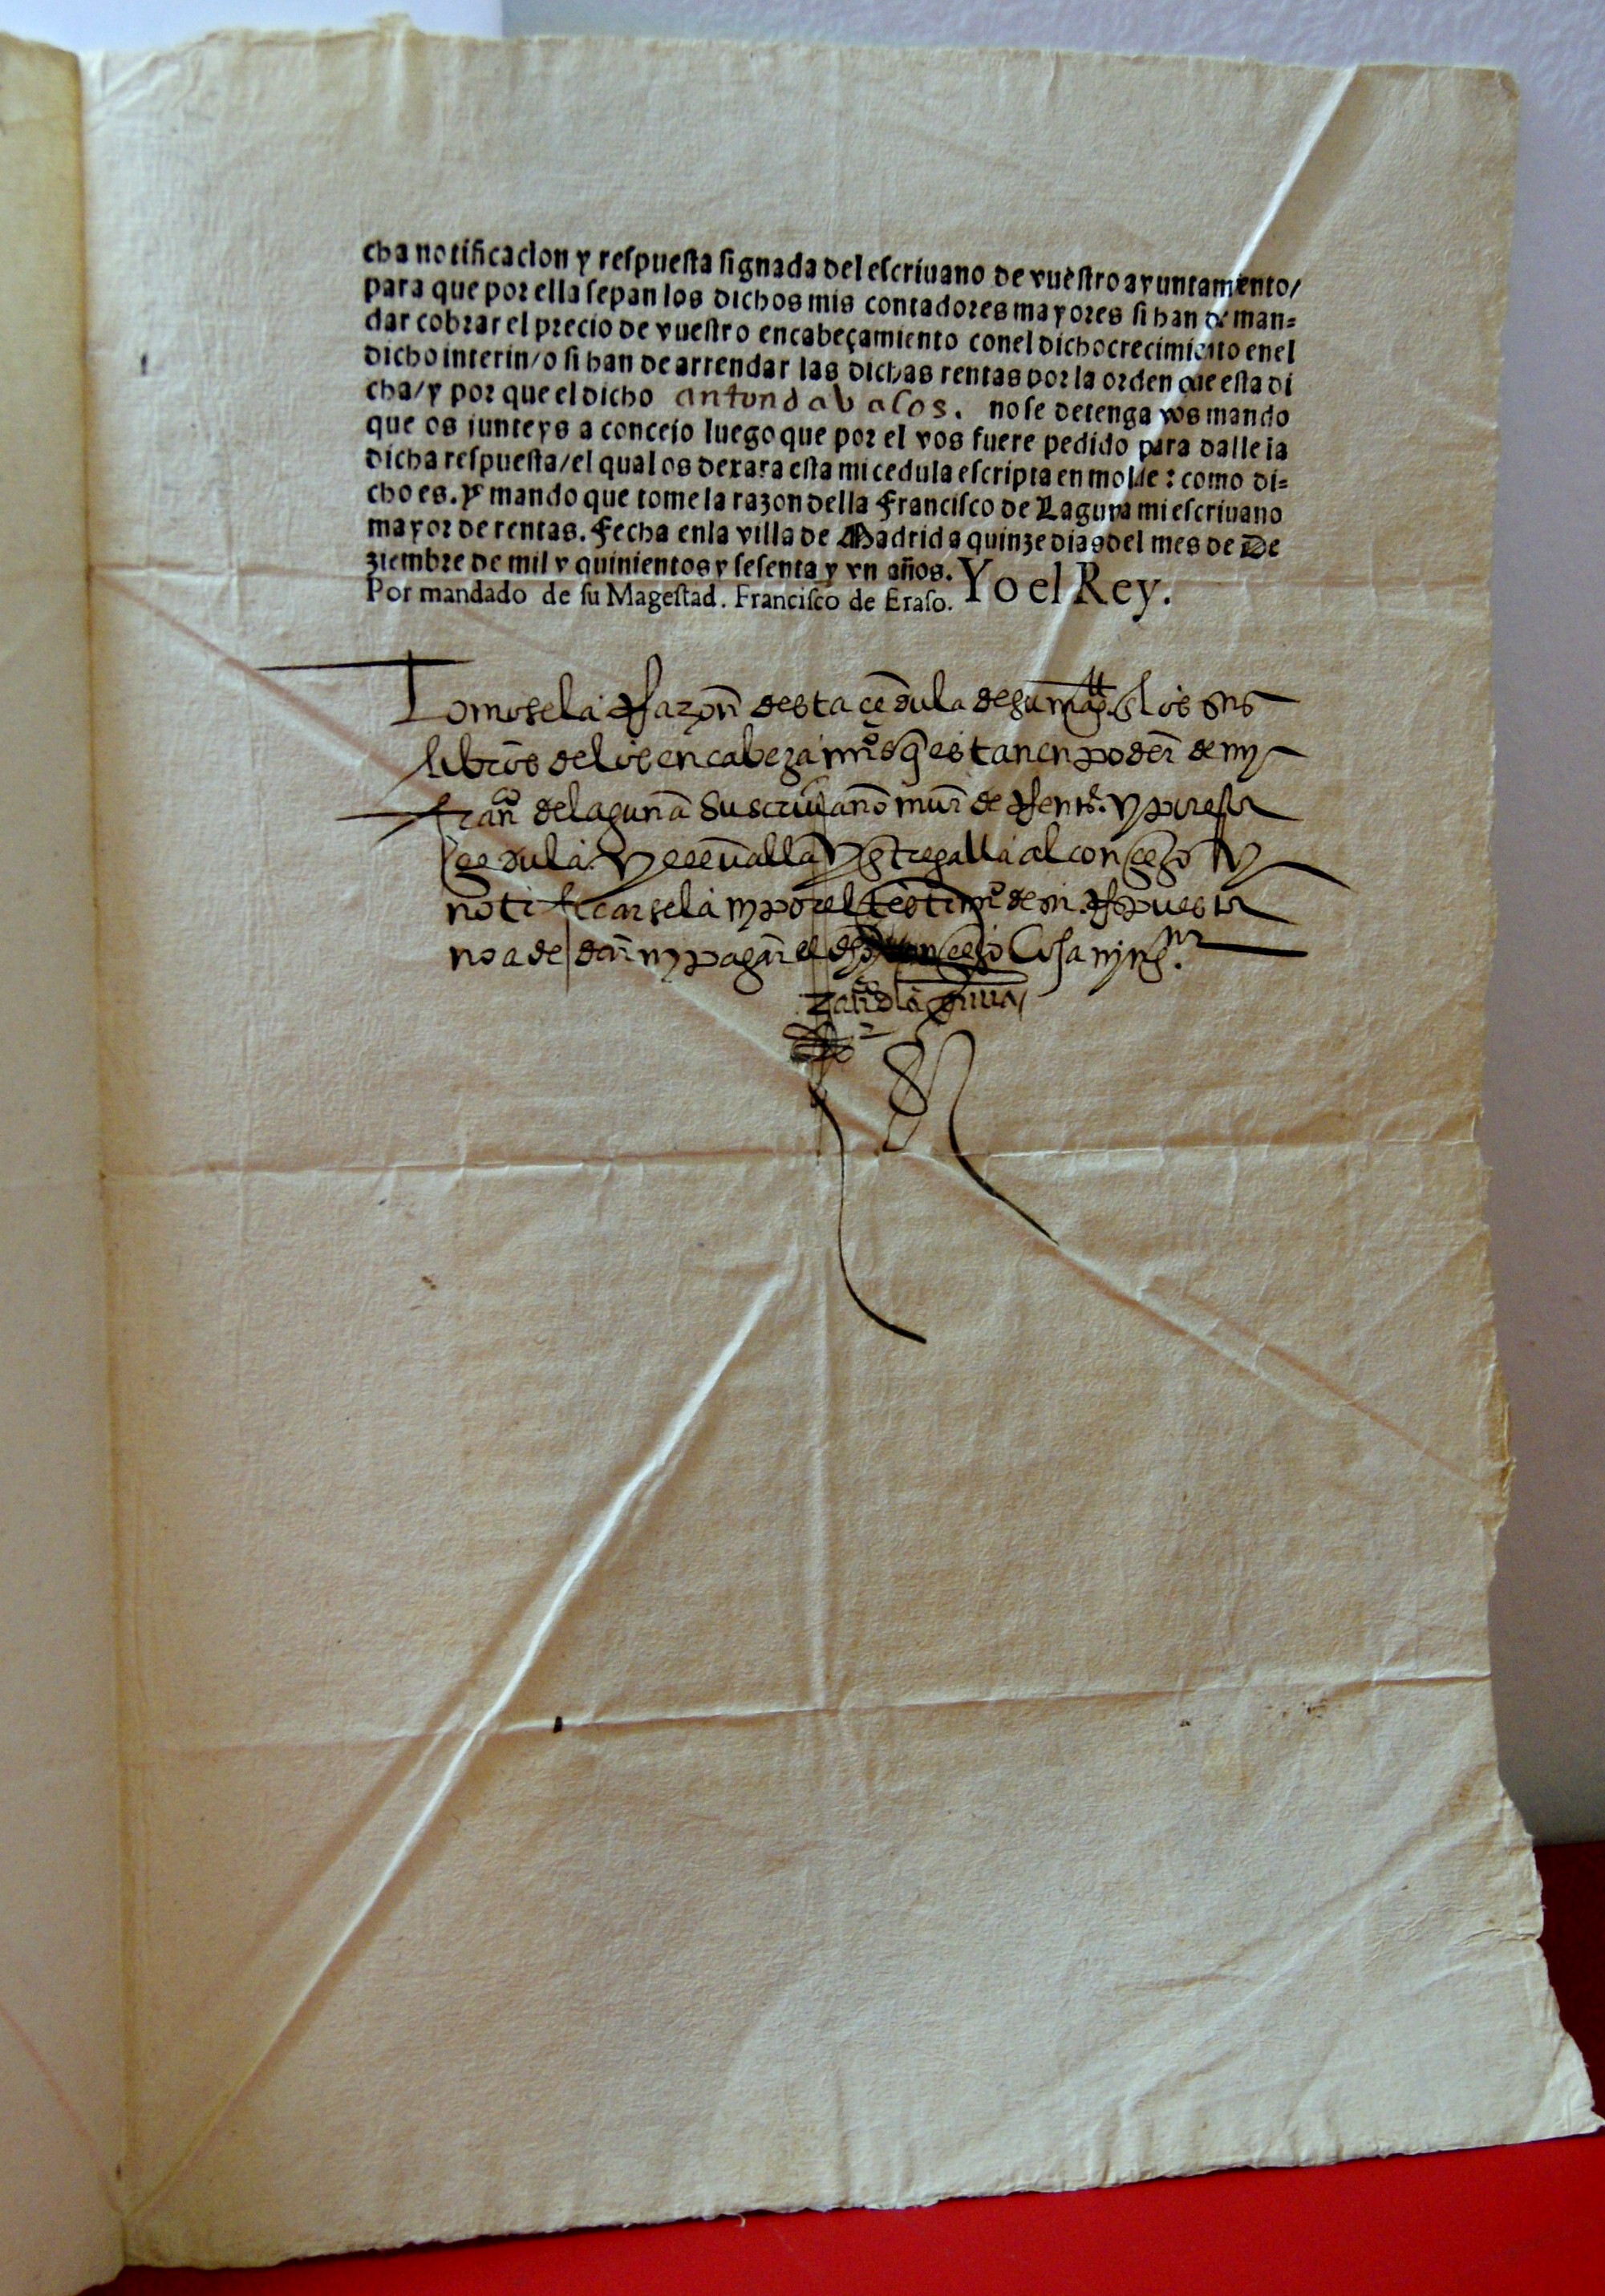 cha notificacion y respuesta signada del escriuano de vuestro ayuntamiento/
para que por ella sepan los dichos mis contadores mayores si han de man=
dar cobrar el precio de vuestro encabeçamiento conel dicho crecimiento enel
dicho interin/o si han de arrendar las dichas rentas por la orden que esta di
cha/y por que el dicho anton davalos. no se detenga vos mando
que os junteys a concejo luego que por el vos fuere pedido para dalle la
dicha respuesta/el qual os dexara esta mi cedula escripta en molde: como di=
cho es. Y mando que tome la razon della Francisco de Laguna mi escriuano
mayor de rentas. Fecha enla villa de Madrid a quinze dias del mes de De
ziembre de mil y quinientos y sesenta y vn años. Yo el Rey.
Por mandado de su Magestad. Francisco de Eraso.
Tomose la Razon desta cedula de su magt. los sus
libros de los encabezamios q estan en poder de my
franco de laguna su scriuano mor de Rentas. y por esta
cedula y y al concejo y
notificarsela ny por el testimo de su Respuesta
no a de dar ny pagar el dho concejo cosa nyngna
franco de laguna